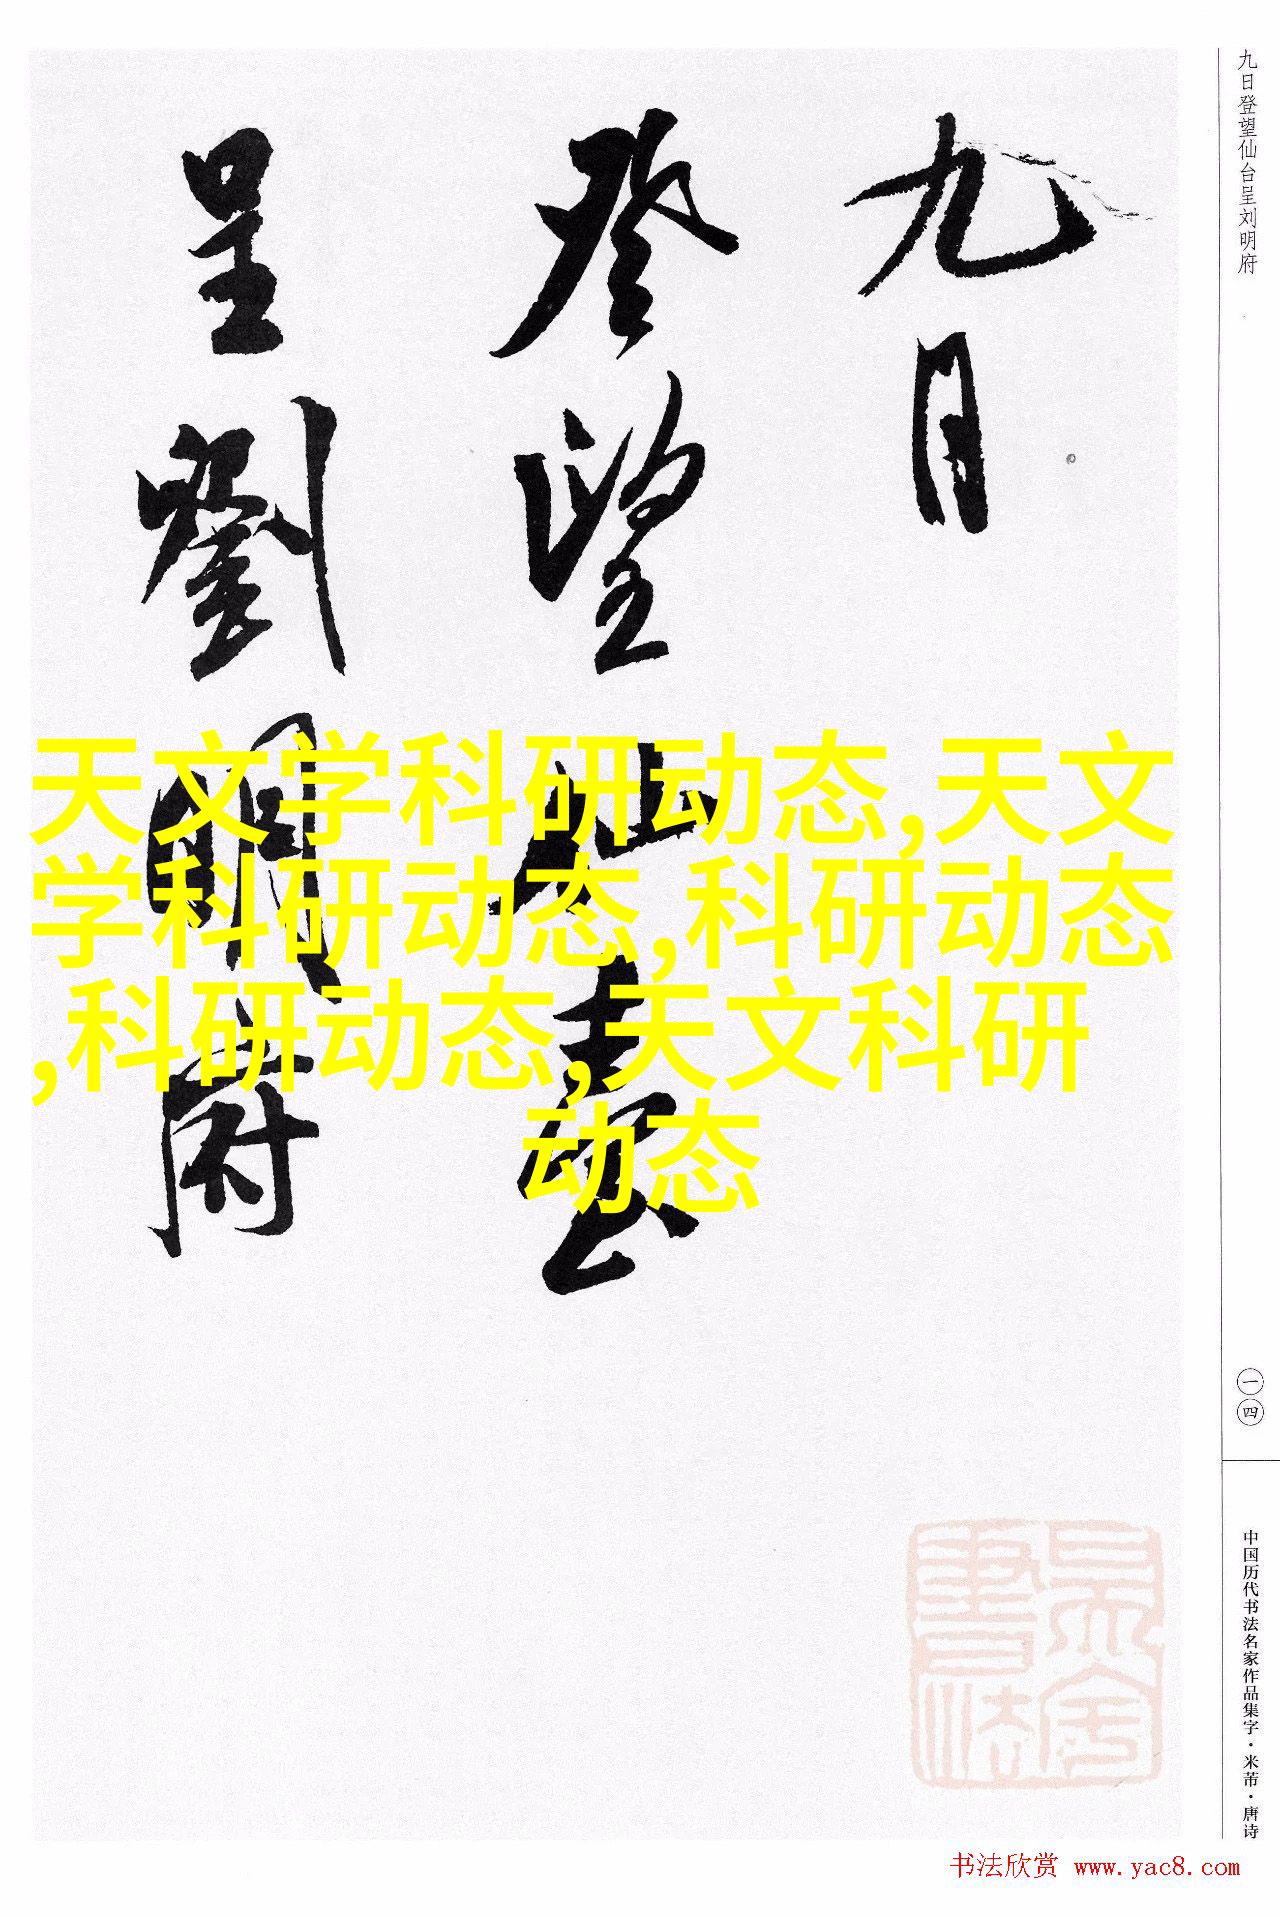 九日
登望仙臺
呈劉明府
九日登望仙台呈刘明府
一四
中国历代书法名家作品集字·米芾·唐诗
天文学科研动态,天文
学科研动态,科研动态
,科研动态,天文科研
动态
书法欣赏 www.yac8.com